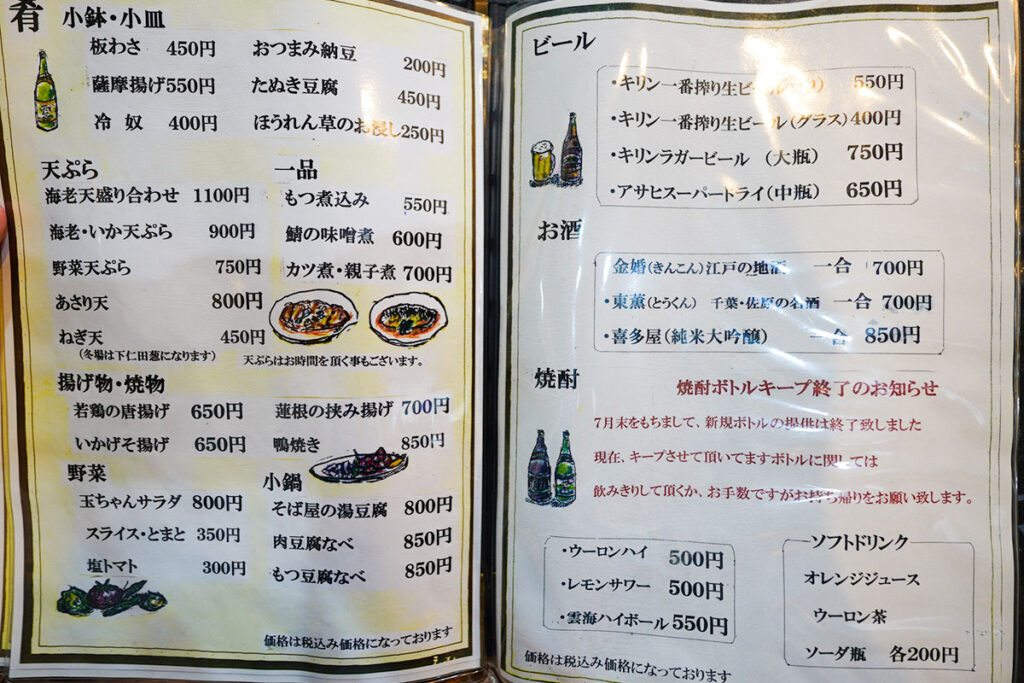 肴
小鉢・小皿
板わさ 450円 おつまみ納豆 200円
薩摩揚げ 550円 たぬき豆腐 450円
冷奴 400円 ほうれん草のお浸し 250円
天ぷら
海老天盛り合わせ 1100円
海老・いか天ぷら 900円
野菜天ぷら 750円
あさり天 800円
ねぎ天 450円
(冬場は下仁田葱になります)
一品
もつ煮込み 550円
鯖の味噌煮 600円
カツ煮・親子煮 700円
天ぷらはお時間を頂く事もございます。
揚げ物・焼物
若鶏の唐揚げ 650円 蓮根の挟み揚げ 700円
いかげそ揚げ 650円 鴨焼き 850円
野菜
玉ちゃんサラダ 800円
スライス・とまと 350円
塩トマト 300円
小鍋
そば屋の湯豆腐 800円
肉豆腐なべ 850円
もつ豆腐なべ 850円
価格は税込み価格になっております
ビール
・キリン一番搾り生ビール 550円
・キリン一番搾り生ビール(グラス) 400円
・キリンラガービール (大瓶) 750円
・アサヒスーパートライ(中瓶) 650円
お酒
金婚(きんこん)江戸の地酒 一合 700円
・東薫(とうくん) 千葉・佐原の名酒 一合 700円
・喜多屋(純米大吟醸) 一合 850円
焼酎
焼酎ボトルキープ終了のお知らせ
7月末をもちまして、新規ボトルの提供は終了致しました
現在、キープさせて頂いてますボトルに関しては
飲みきりして頂くか、お手数ですがお持ち帰りをお願い致します。
・ウーロンハイ 500円
・レモンサワー 500円
・雲海ハイボール 550円
ソフトドリンク
オレンジジュース
ウーロン茶
ソーダ瓶 各200円
価格は税込み価格になっております